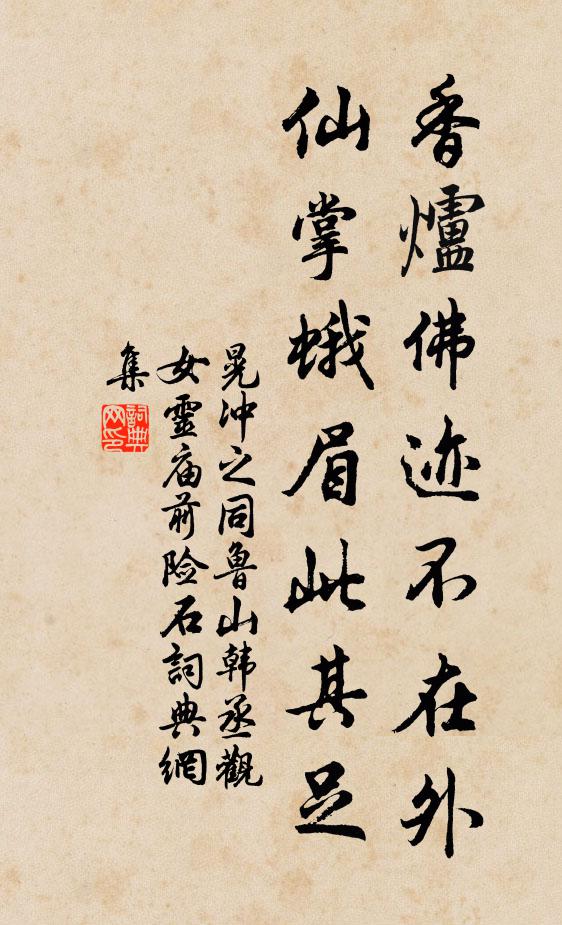 香爐佛迹不在外
仙掌蛾眉此其足
晁冲之同鲁山韩丞觀
女靈庙前险石詞典網
集
詞典
网印